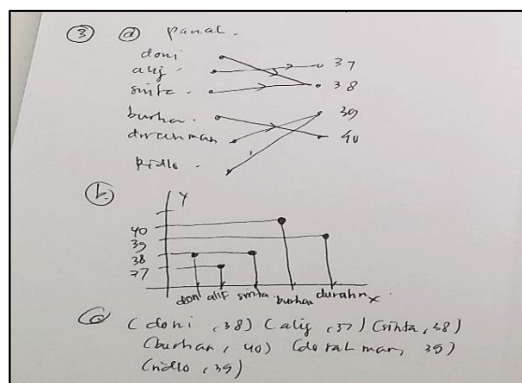 ③ ⓐ panal.
doni
alif
sinta
burhan
durahman
ridlo
37
38
39
40
ⓑ
Y
40
39
38
37
doni alif sinta burhan durahn x
ⓒ (doni, 38) (alif, 37) (sinta, 38)
(burhan, 40) (durahman, 39)
(ridlo, 39)